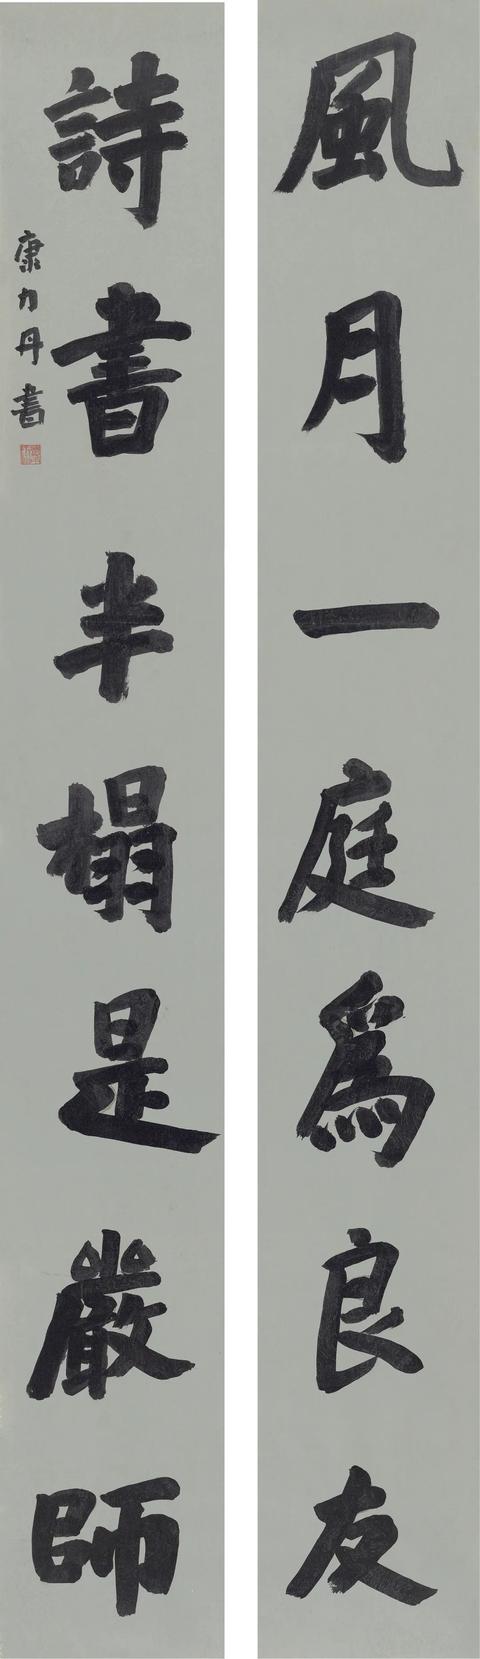 風月一庭為良友
詩書半榻是嚴師
康力丹書